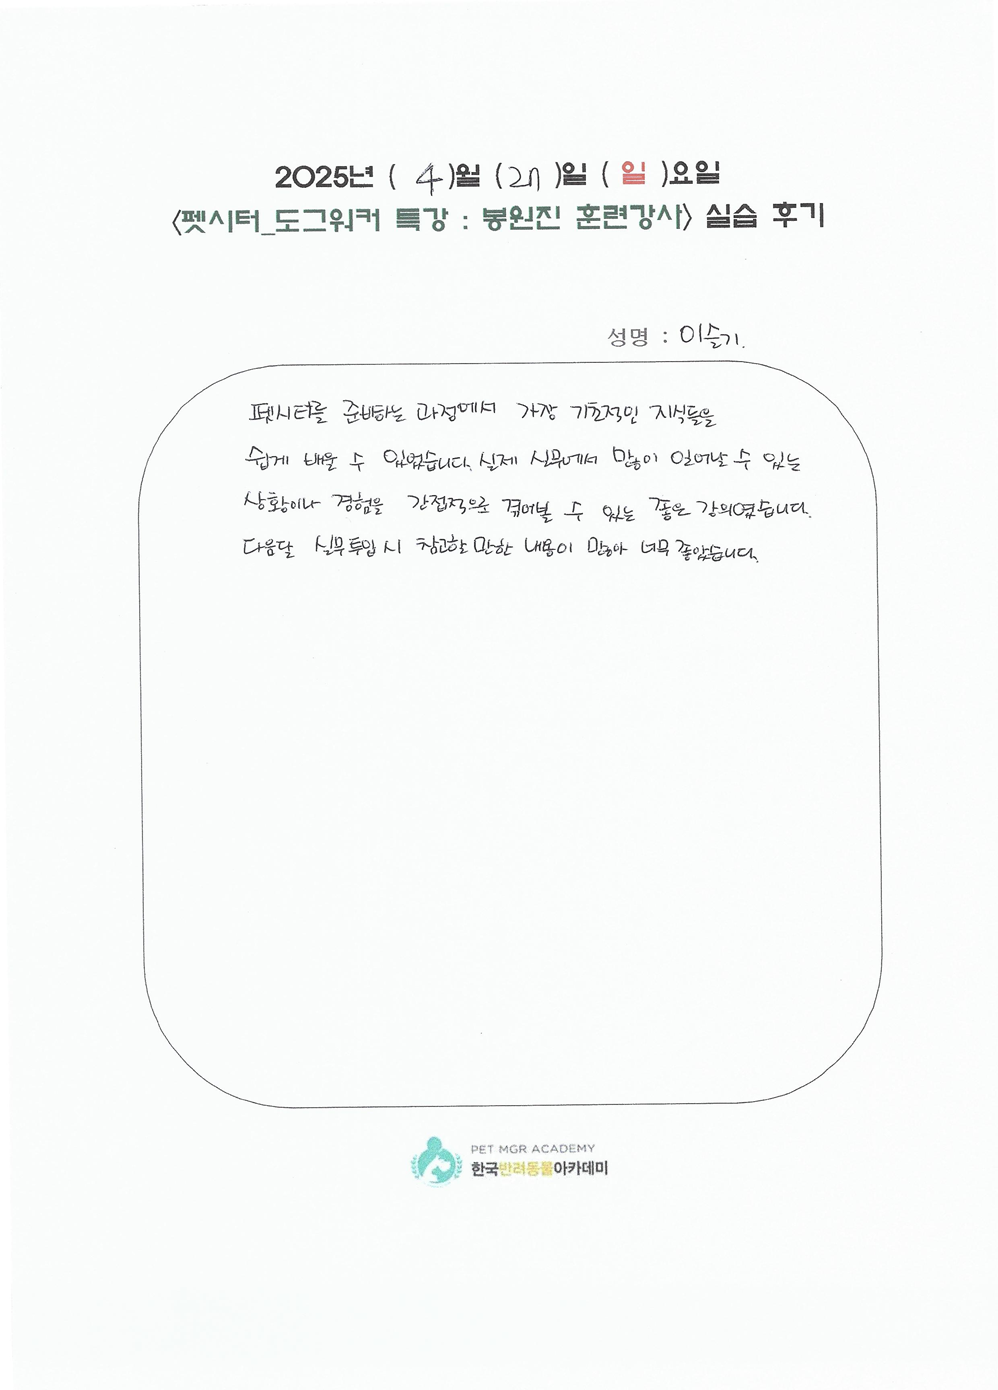 2025년 ( 4 )월 ( 27 )일 ( 일 )요일
<펫시터_도그워커 특강 : 봉원진 훈련강사> 실습 후기
성명 : 이슬기.
펫시터를 준비하는 과정에서 가장 기초적인 지식들을
쉽게 배울 수 있었습니다. 실제 실무에서 많이 일어날 수 있는
상황이나 경험을 간접적으로 겪어볼 수 있는 좋은 강의였습니다.
다음달 실무투입 시 참고할 만한 내용이 많아 너무 좋았습니다.
PET MGR ACADEMY
한국반려동물아카데미